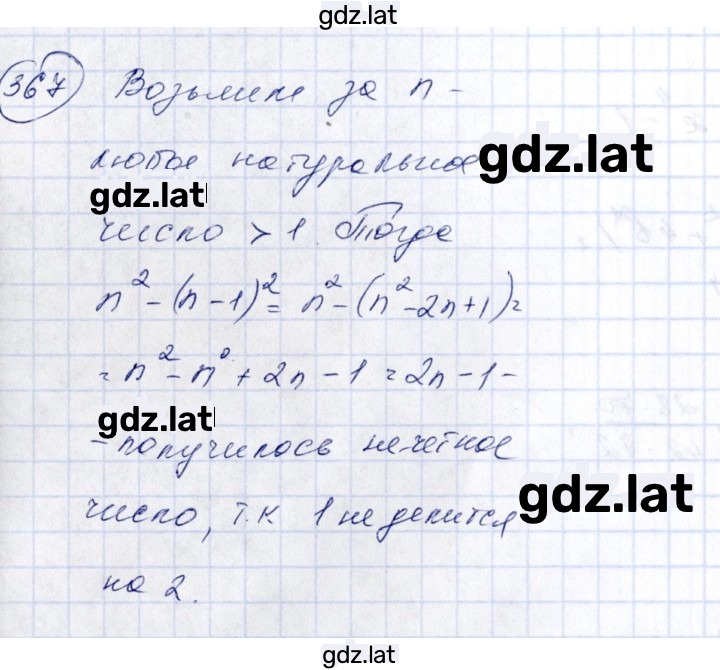 gdz.lat
367 Возьмем за n -
любое натуральное gdz.lat
gdz.lat
число > 1. Тогда
n² - (n - 1)² = n² - (n² - 2n + 1) =
= n² - n² + 2n - 1 = 2n - 1 -
gdz.lat
- получилось нечетное
число, т.к 1 не делится gdz.lat
на 2.
gdz.lat